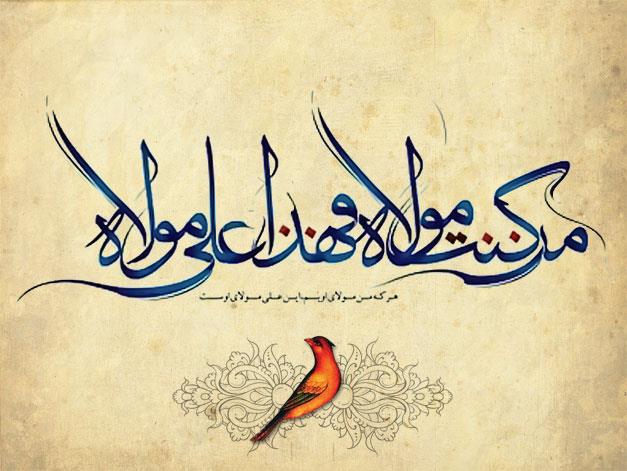 من كنت مولاه فهذا علی مولاه
هر که من مولای اویم این علی مولای اوست